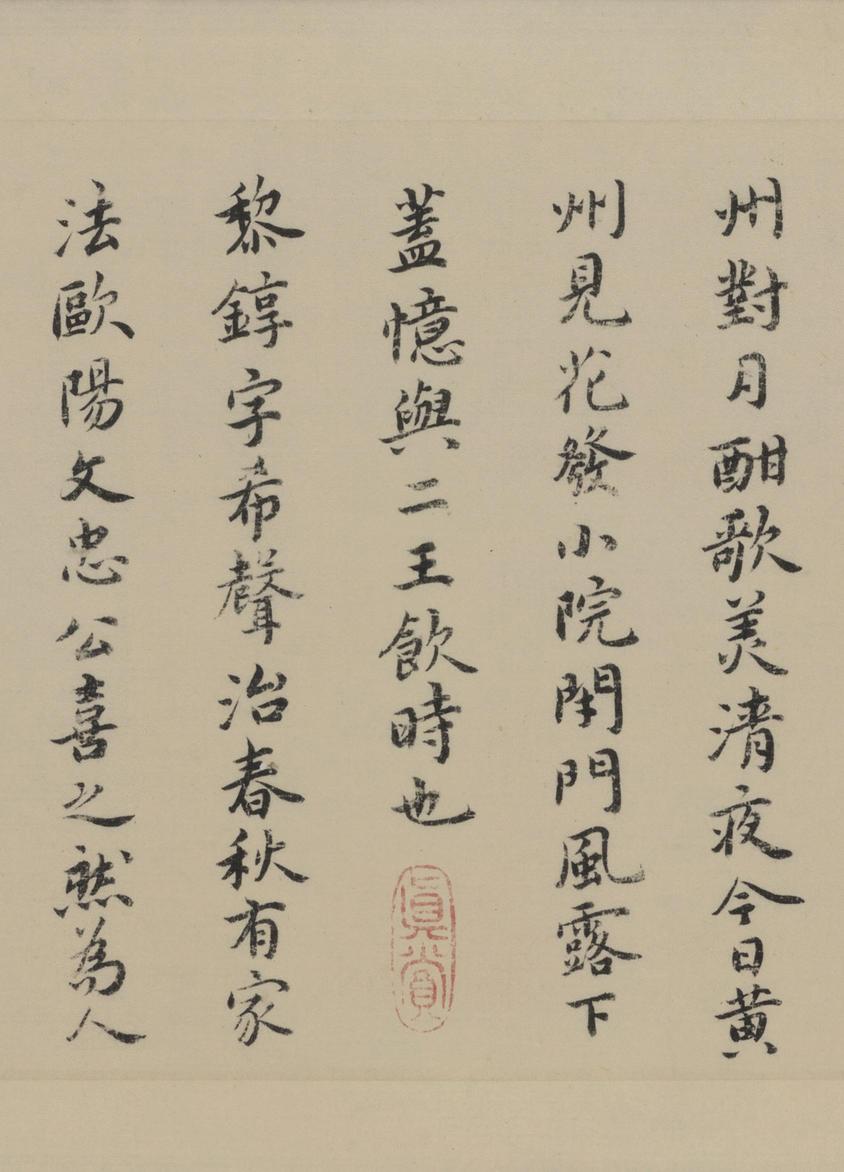 州對月酣歌美清夜今日黃
州見花發小院閉門風露下
蓋憶與二王飲時也
真賞
黎錞字希聲治春秋有家
法歐陽文忠公喜之然為人